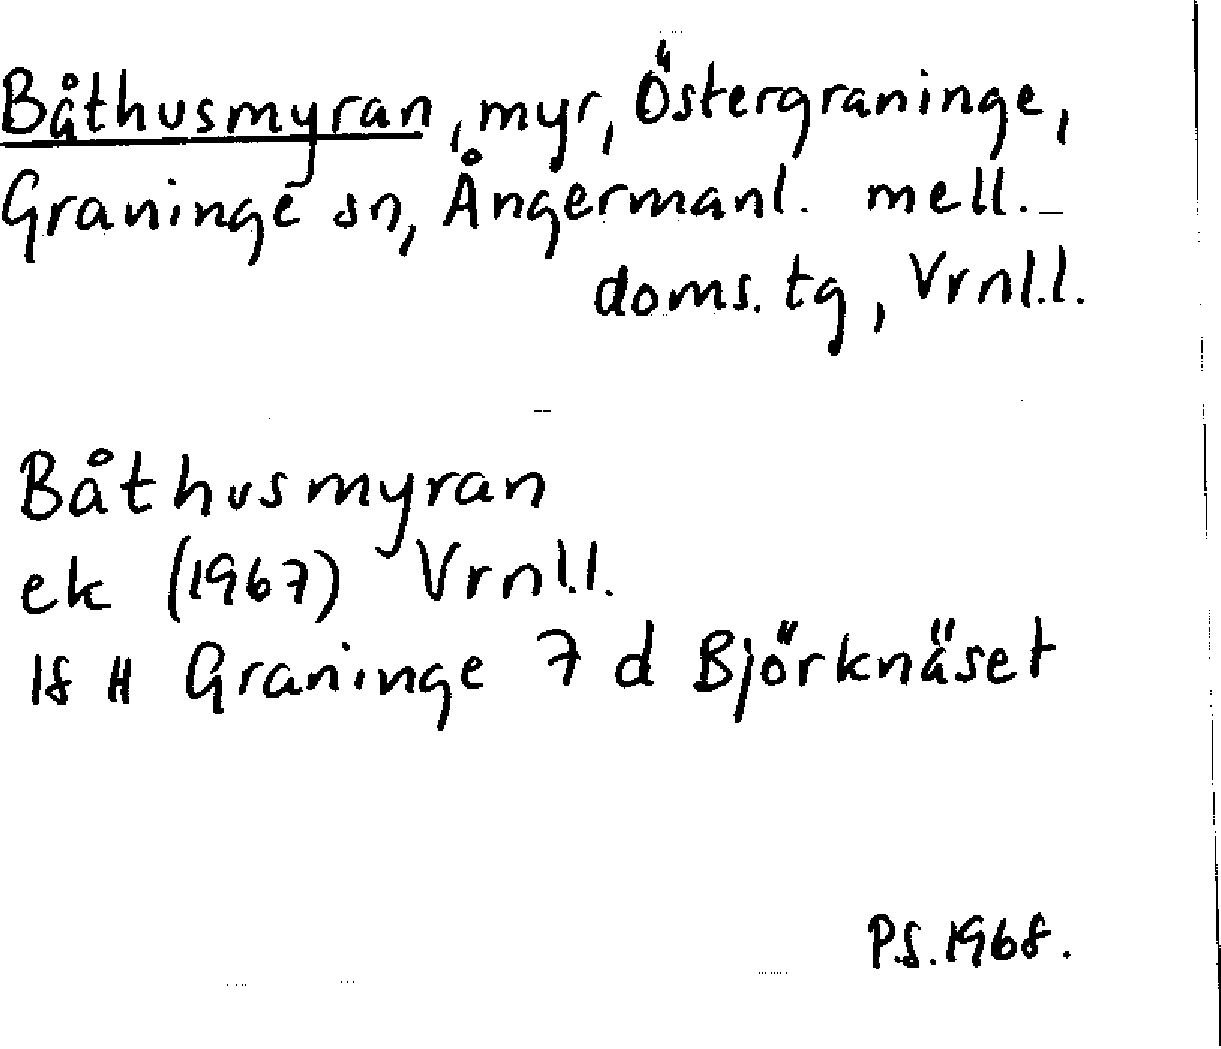 Båthusmyran, myr, Östergraninge,
Graninge sn, Ångermanl. mell.
doms. tg, Vrnl.l.
Båthusmyran
ek (1967) Vrnl.l.
18 H Graninge 7 d Björknäset
P.S. 1968.